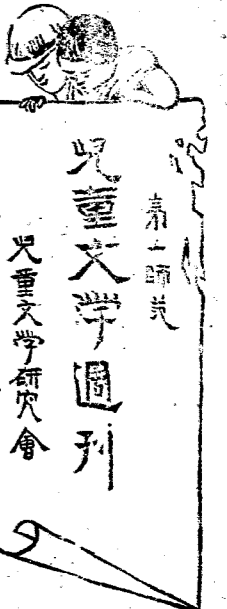 師范
児童文学週刊
児童文学研究會